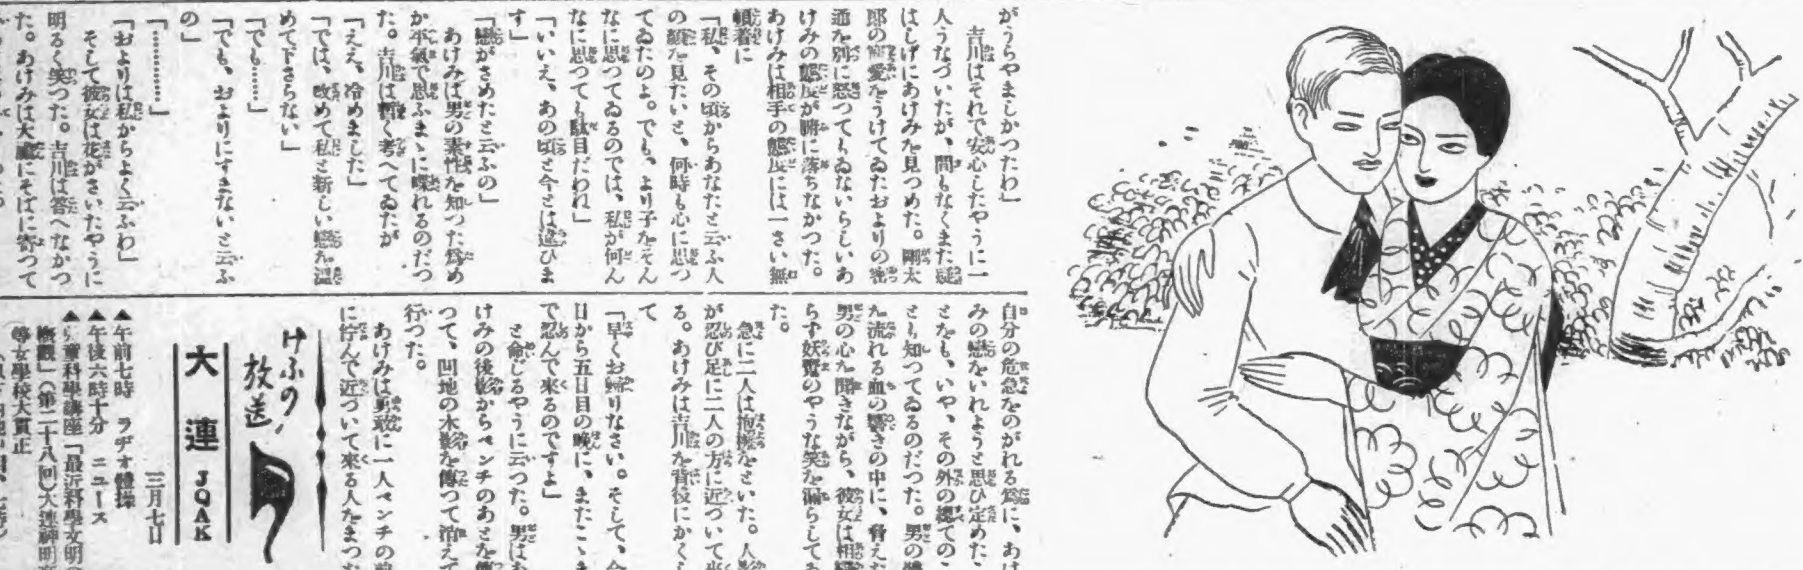 がうらやましかつたわ」
吉川はそれで安心したやうに一
人うなづいたが、間もなくまた疑
はしげにあけみを見つめた。剛太
郎の寵愛をうけてゐたおよりの密
通を別に怒つてもゐないらしいあ
けみの態度が腑に落ちなかつた。
あけみは相手の態度には一さい無
頓着に
「私、その頃からあなたと云ふ人
の顔を見たいと、何時も心に思つ
てゐたのよ。でも、より子をそん
なに思つてゐるのでは、私が何ん
なに思つても駄目だわれ」
「いいえ、あの頃と今とは違ひま
す」
「戀がさめたと云ふの」
あけみは男の素性を知つた爲め
か平氣で思ふまゝに喋れるのだつ
た。吉川は暫く考へてゐたが
「ええ、冷めました」
「では、改めて私と新しい戀を温
めて下さらない」
「でも……」
「でも、およりにすまないと云ふ
の」
「…………」
「およりは私からよく云ふわ」
そして彼女は花がさいたやうに
明るく笑つた。吉川は答へなかつ
た。あけみは大膽にそばに寄つて
自分の危急をのがれる爲に、あけ
みの戀をいれようと思ひ定めたこ
とをも、いや、その外の總てのこ
とも知つてゐるのだつた。男の體
を流れる血の響きの中に、脅えた
男の心を聞きながら、彼女は相變
らず妖婦のやうな笑を漏らしてゐ
た。
急に二人は抱擁をといた。人影
が忍び足に二人の方に近づいて來
る。あけみは吉川を背後にかくし
て
「早くお歸りなさい。そして、今
日から五日目の晩に、またこゝま
で忍んで來るのですよ」
と命じるやうに云つた。男はあ
けみの後影からベンチのあとを傳
つて、凹地の木影を傳つて消えて
行つた。
あけみは勇敢に一人ベンチの前
に佇んで近づいて來る人をまつた
けふの
放送
大連 JQAK
三月七日
▲午前七時 ラヂオ體操
▲午後六時十分 ニュース
▲兒童科學講座「最近科學文明の
概觀」(第二十八回)大連神明高
等女學校大貫正